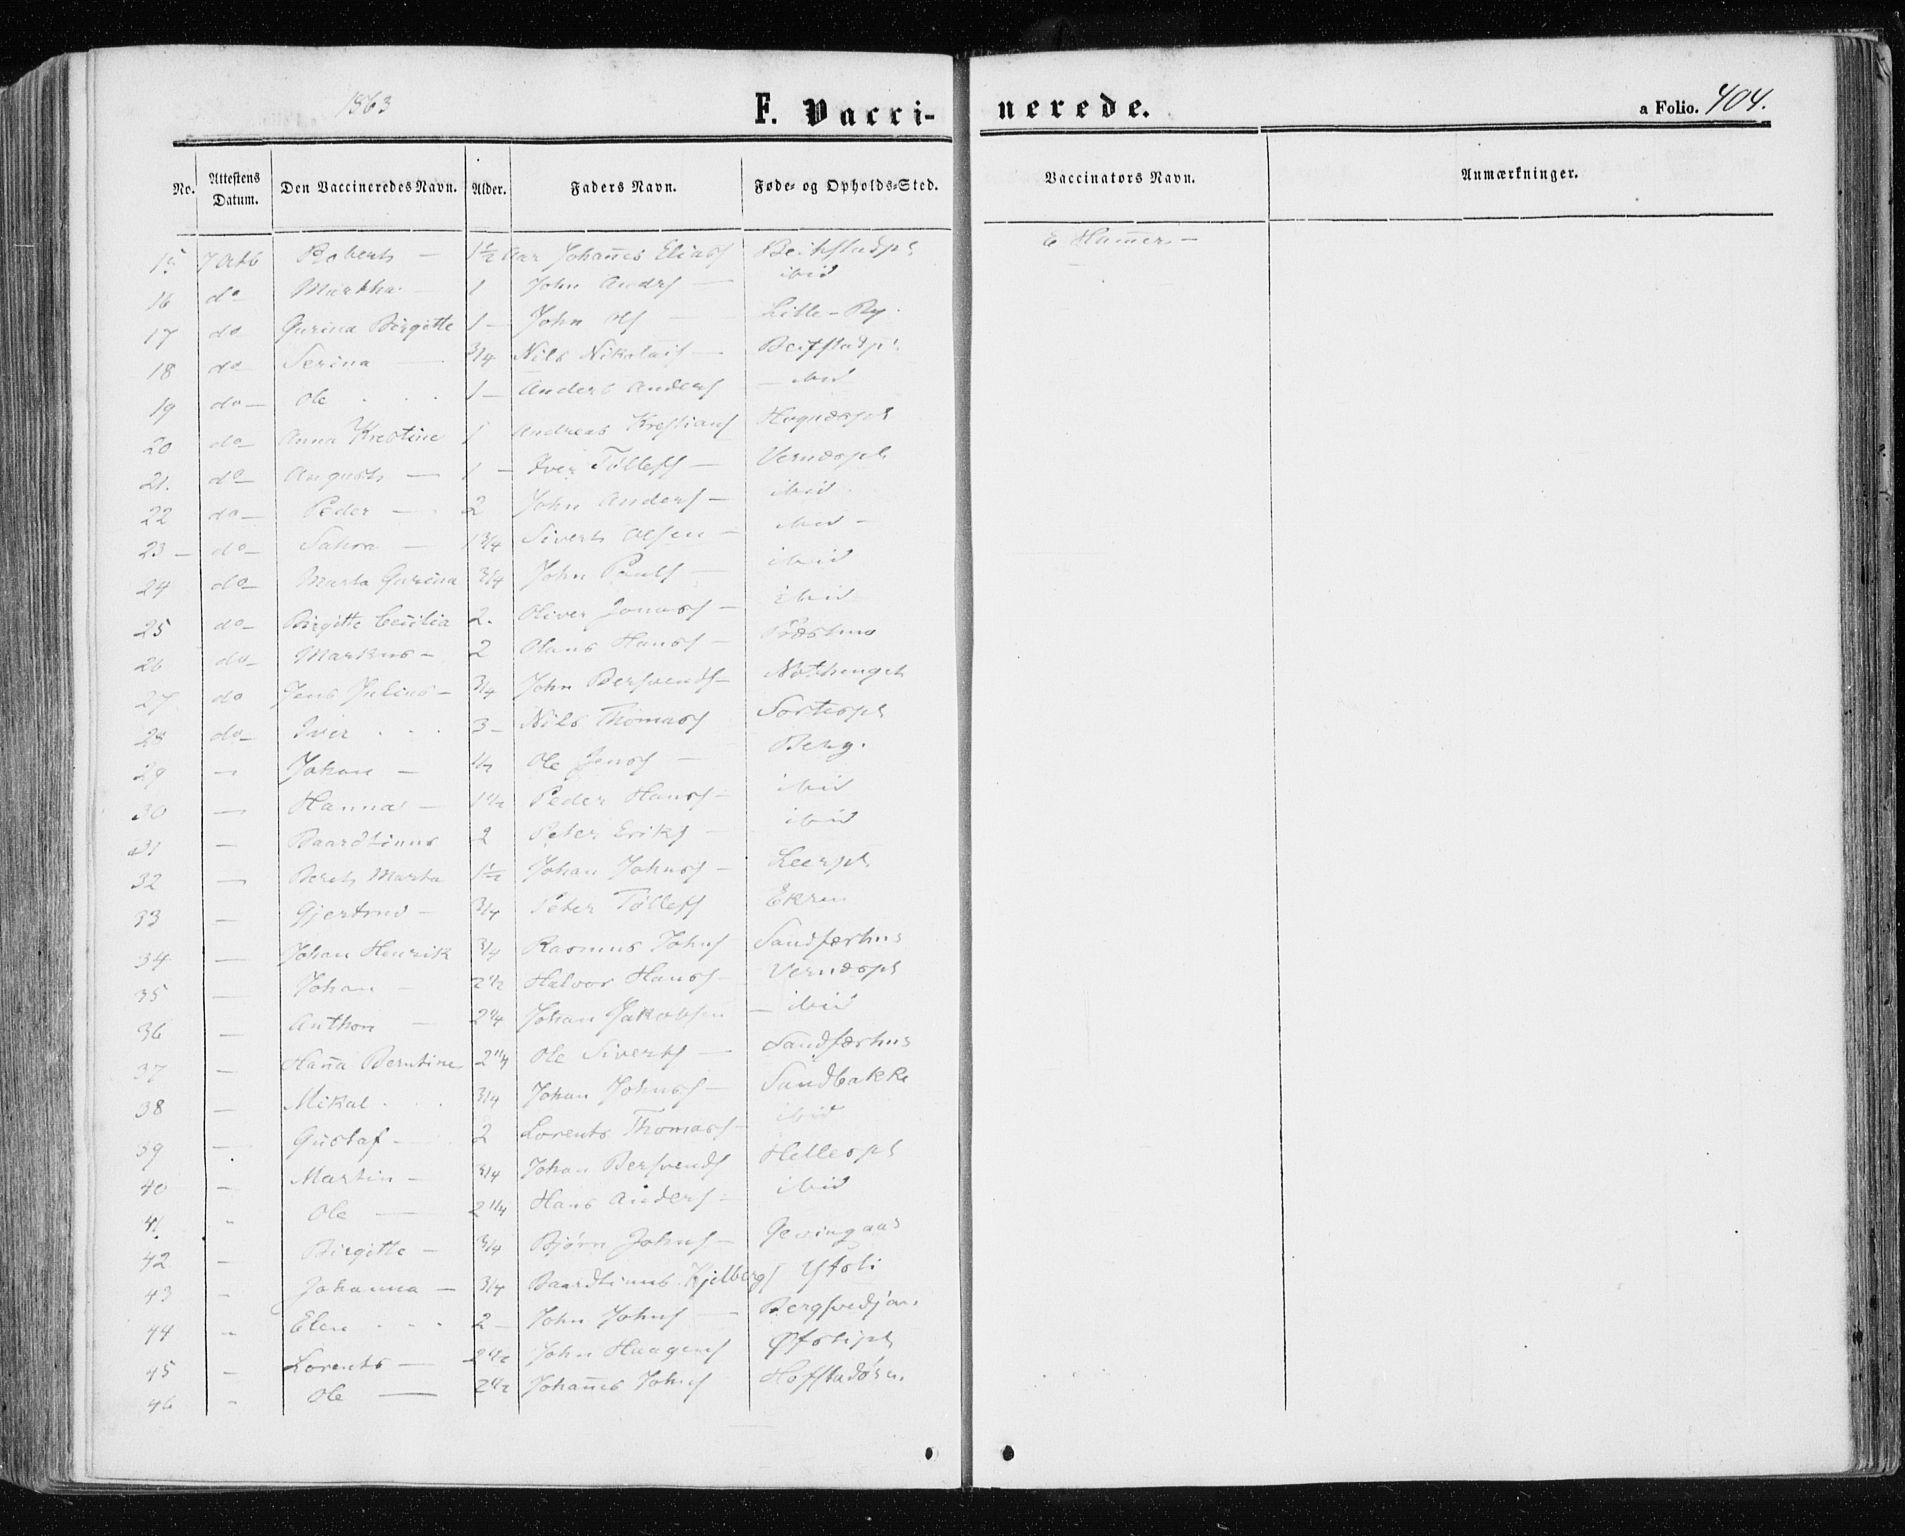 1863
F. Vacci-nerede.
a Folio. 404.
No. Attestens Datum. Den Vaccineredes Navn. Alder. Faders Navn. Føde- og Opholds-Sted. Vaccinators Navn. Anmærkninger.
15 7 Oktb Roberth — 1½ Aar Johañes Eliass Beitstadpl E Ham̄er —
16 do Martha — 1 John Anders — ibid
17 do Gurina Birgitte 1 — John Ols — Lille-By.
18 do Serina — 3/4 Nils Nikolais — Beitstadpl
19 do — Ole . . . 1 — Anders Anders — ibid
20 do — Anna Krestine 1 Andreas Krestians
21. do — August — 1 — Iver Tøllefs — Vernæspl
22 do — Peder — 2 John Anders — ibid
23 — do — 1 3/4 Sivert Olsen — ibid —
24 do — Marta Gurina 3/4 John Pauls — ibid
25 do — Birgitte Cecilia 2. Oliver Jonass — ibid
26 do — Markus — 2 Hans —
27 do Jens Julius — 3/4 John Bersvends —
28 do — Iver . . . 3 — Nils Thomass
29 — Johan — Ole Jenss — Berg.
30 — Hanna — 1 1/2 Peder Hanss — ibid
31 — Baardtinus 2 Peter Eriks — ibid
32 — Bereth Marta 1½ Johan Johnss — Leerspl
33 — Gjertrud — 3/4 Peter Tølleffs Ekren
34 — Johan Henrik 3/4 Rasmus Johns Sandfærhus
35 — Johan — 2 1/2 Halvor Hanss — Vernæspl
36 — Anthon — 2 1/4 Johan Jakobsen — ibid
37 — Hañna Berntine 2 1/4 Ole Siverts — Sandfærhus
38 — Mikal . . . 3/4 Johan Johnss — Sandbakke
39 — Gustaf — 2 Lorents Thomass — ibid
40 — Martin — 3/4 Johan Bersvends Hellespl
41 " Ole — 2 1/4 Hans Anders — ibid
42 — Birgitte — 3/4 Bjørn Johns — Gevingaas
43 — Johanna — 3/4 Baardtinus Kjelbergs
44 " Elen . . . 2 — John Johns —
45 — Lorents — 2 1/2 John Haagens Øfstipl
46 " Ole — 2 1/2 Johañes Johns